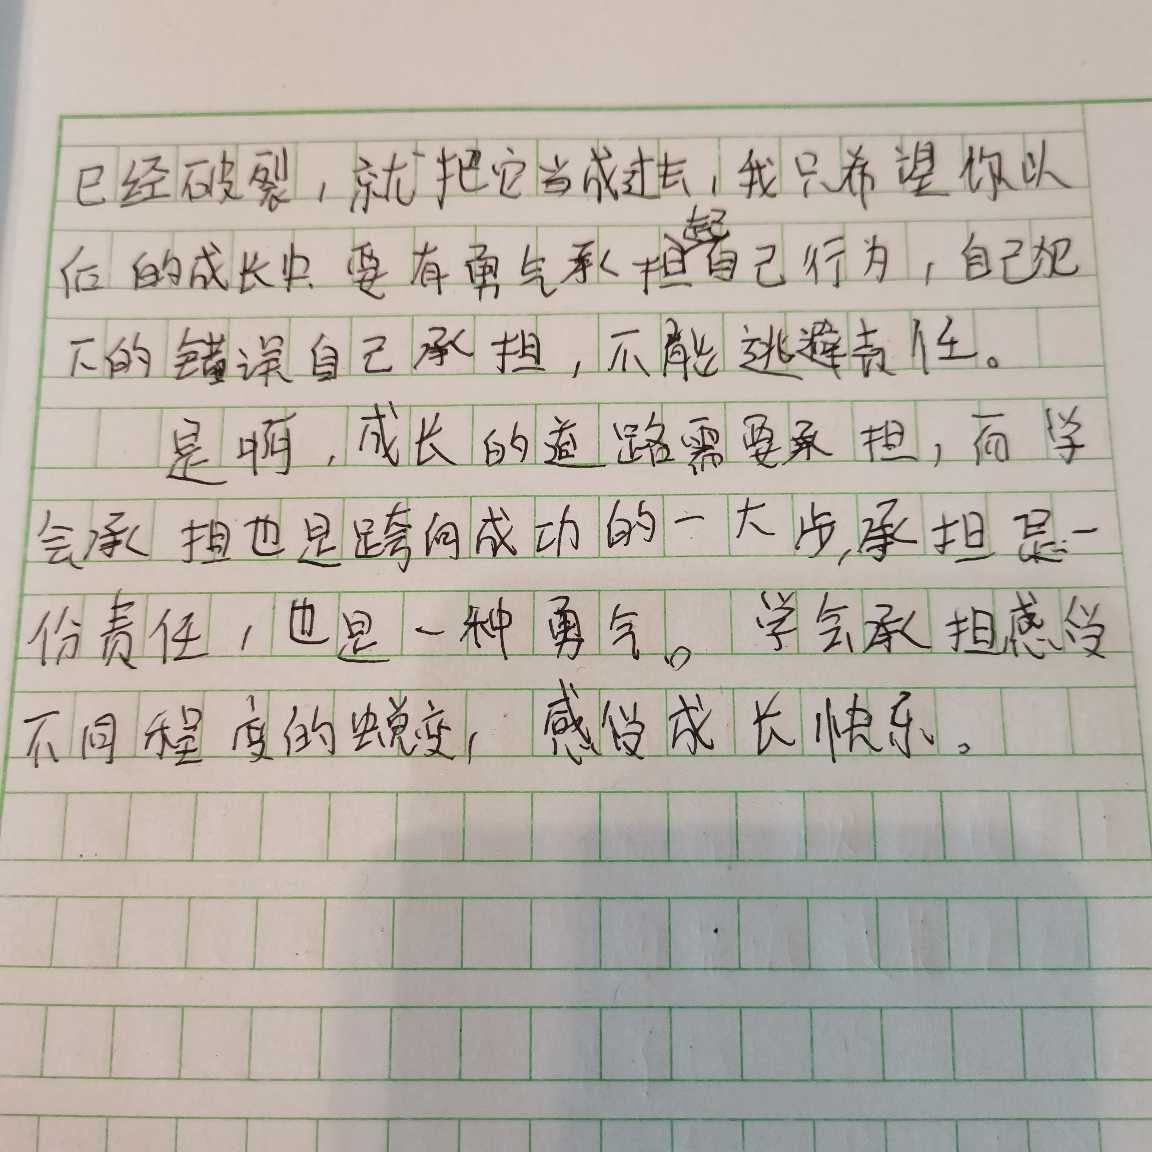 已经破裂，就把它当成过去，我只希望你以
后的成长中要有勇气承担起自己行为，自己犯
下的错误自己承担，不能逃避责任。
是啊，成长的道路需要承担，而学
会承担也是跨向成功的一大步，承担是一
份责任，也是一种勇气。学会承担感受
不同程度的蜕变，感受成长快乐。